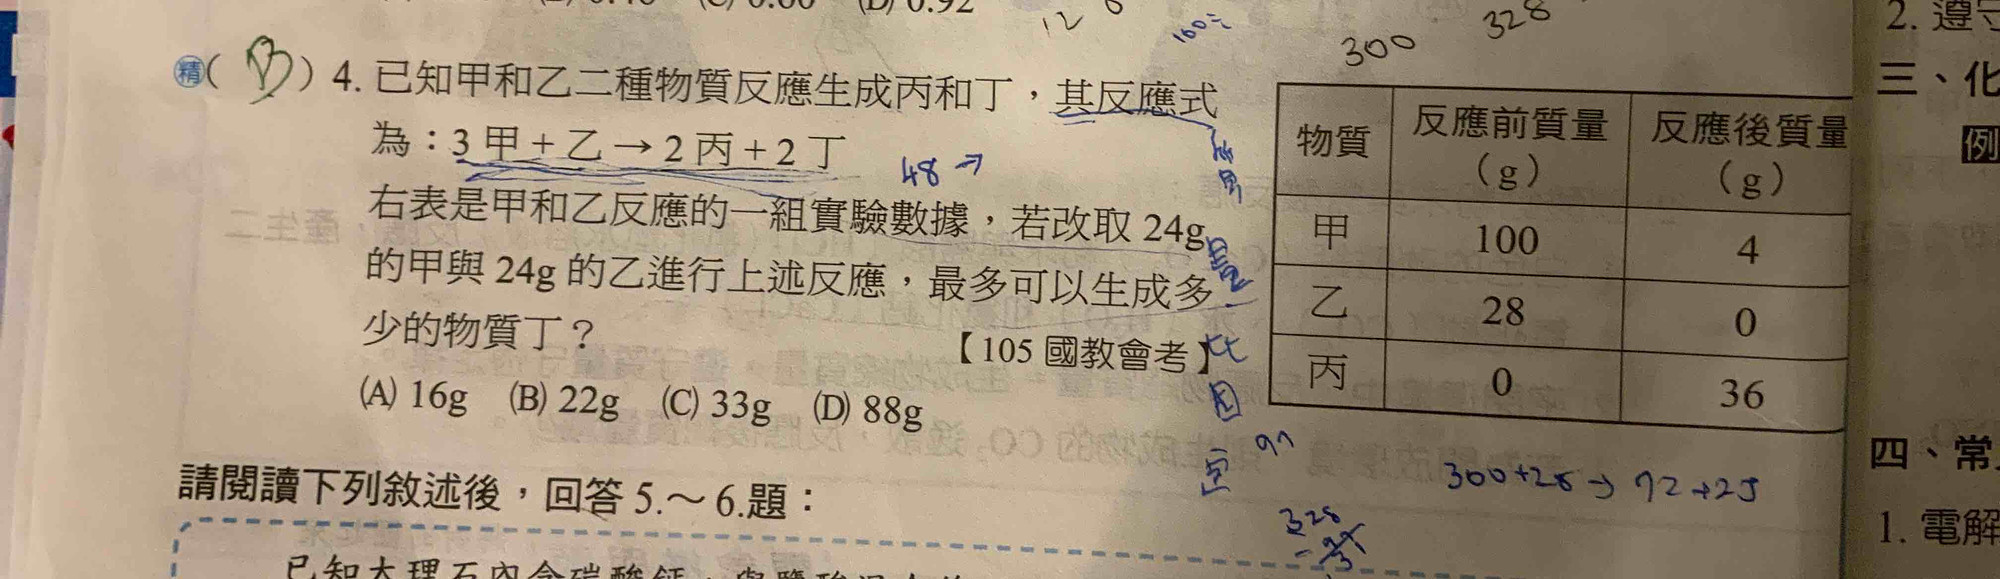 (D) 0.92
12
6
300
328
2. 遵守
三、化
例
精( B ) 4. 已知甲和乙二種物質反應生成丙和丁，其反應式
為：3 甲＋乙→2 丙＋2 丁
48 →
右表是甲和乙反應的一組實驗數據，若改取 24g
的甲與 24g 的乙進行上述反應，最多可以生成多
少的物質丁？ 【105 國教會考】
(A) 16g (B) 22g (C) 33g (D) 88g
物質 反應前質量（g） 反應後質量（g）
甲 100 4
乙 28 0
丙 0 36
300+28→72+2丁
328
四、常
1. 電解
請閱讀下列敘述後，回答 5.～6.題：